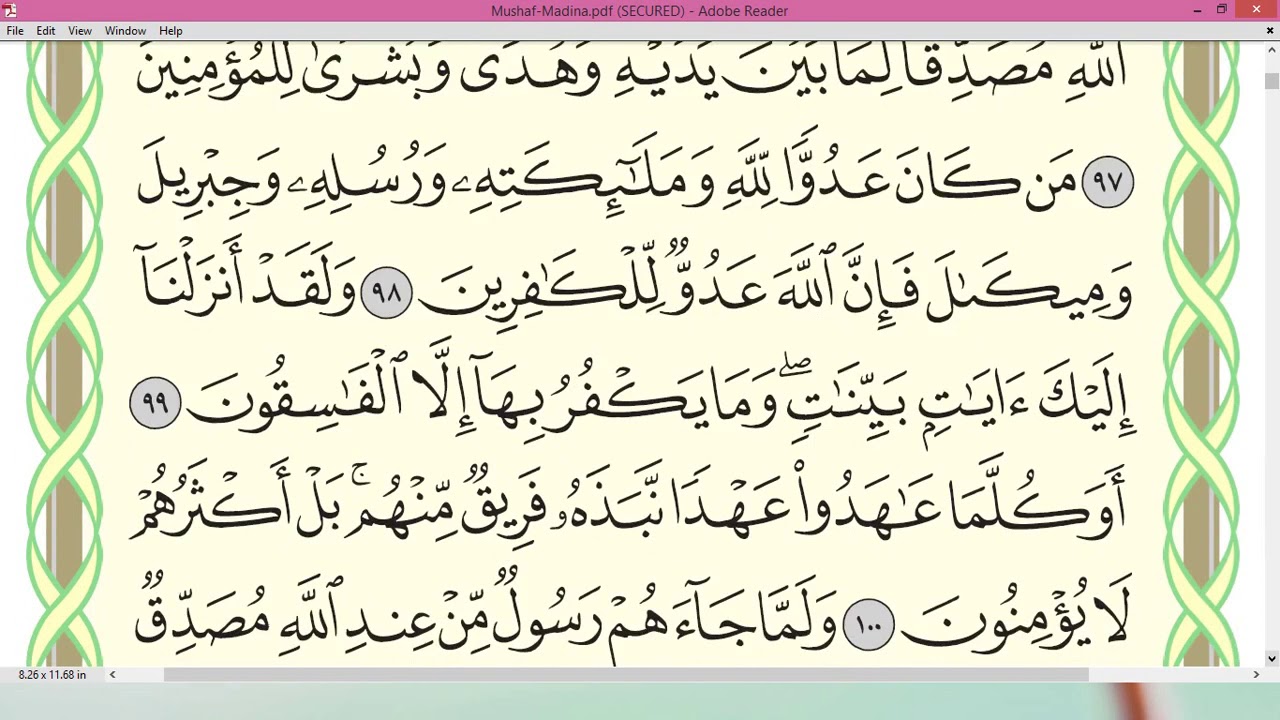 Mushaf-Madina.pdf (SECURED) - Adobe Reader
File Edit View Window Help
ٱللَّهِ مُصَدِّقًا لِّمَا بَيْنَ يَدَيْهِ وَهُدًى وَبُشْرَىٰ لِلْمُؤْمِنِينَ
٩٧ مَن كَانَ عَدُوًّا لِّلَّهِ وَمَلَـٰٓئِكَتِهِۦ وَرُسُلِهِۦ وَجِبْرِيلَ
وَمِيكَىٰلَ فَإِنَّ ٱللَّهَ عَدُوٌّ لِّلْكَـٰفِرِينَ ٩٨ وَلَقَدْ أَنزَلْنَآ
إِلَيْكَ ءَايَـٰتٍۭ بَيِّنَـٰتٍ ۖ وَمَا يَكْفُرُ بِهَآ إِلَّا ٱلْفَـٰسِقُونَ ٩٩
أَوَكُلَّمَا عَـٰهَدُوا۟ عَهْدًا نَّبَذَهُۥ فَرِيقٌ مِّنْهُم ۚ بَلْ أَكْثَرُهُمْ
لَا يُؤْمِنُونَ ١٠٠ وَلَمَّا جَآءَهُمْ رَسُولٌ مِّنْ عِندِ ٱللَّهِ مُصَدِّقٌ
8.26 x 11.68 in